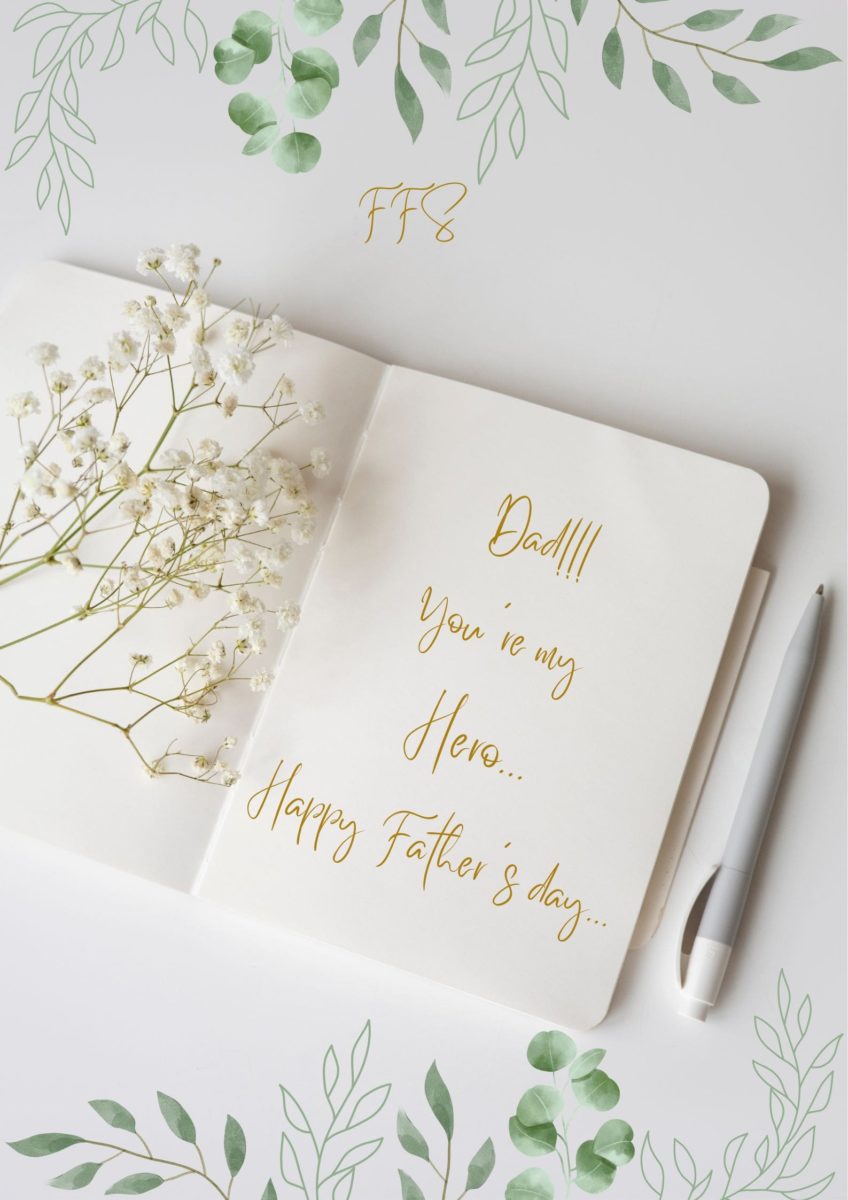 FFS
Dad!!!
You're my
Hero...
Happy Father's day...